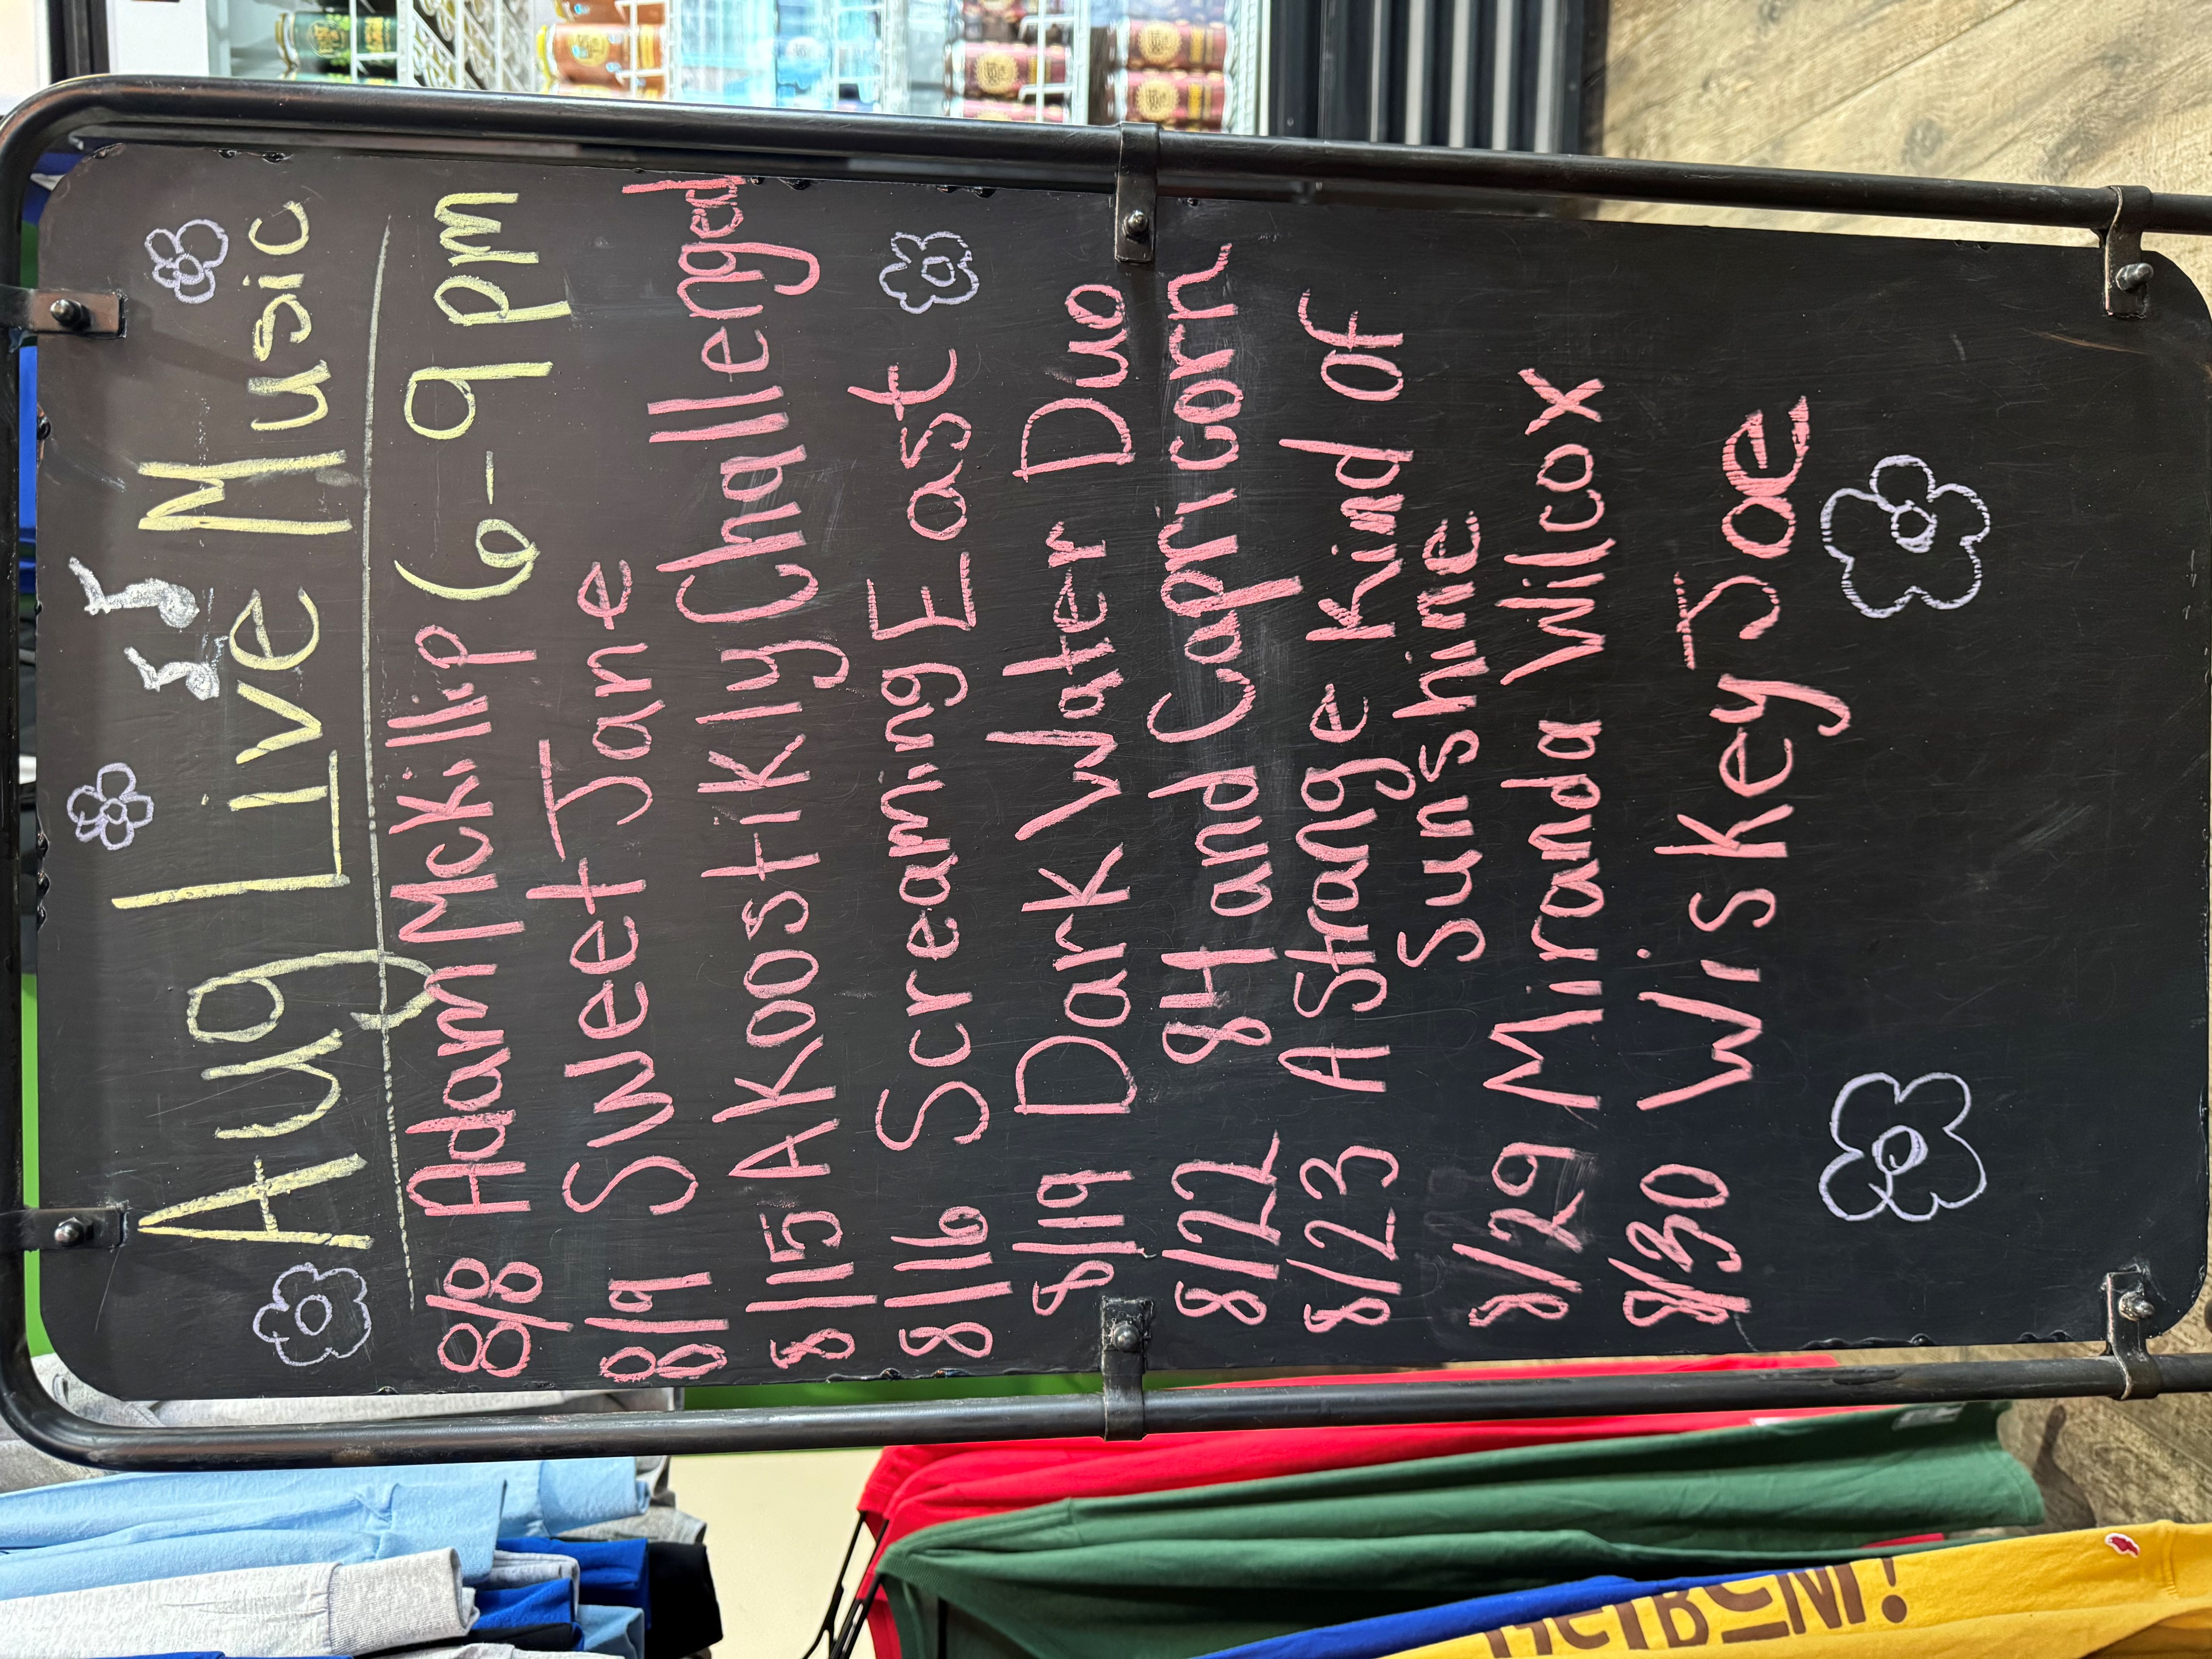 Aug Live Music
6-9 pm
8/8 Adam McKillip
8/9 Sweet Jane
8/15 Akoostikly Challenged
8/16 Screaming East
8/19 Dark Water Duo
8/22 8H and Capricorn
8/23 A Strange Kind of
Sunshine
8/29 Miranda Wilcox
8/30 Wiskey Joe